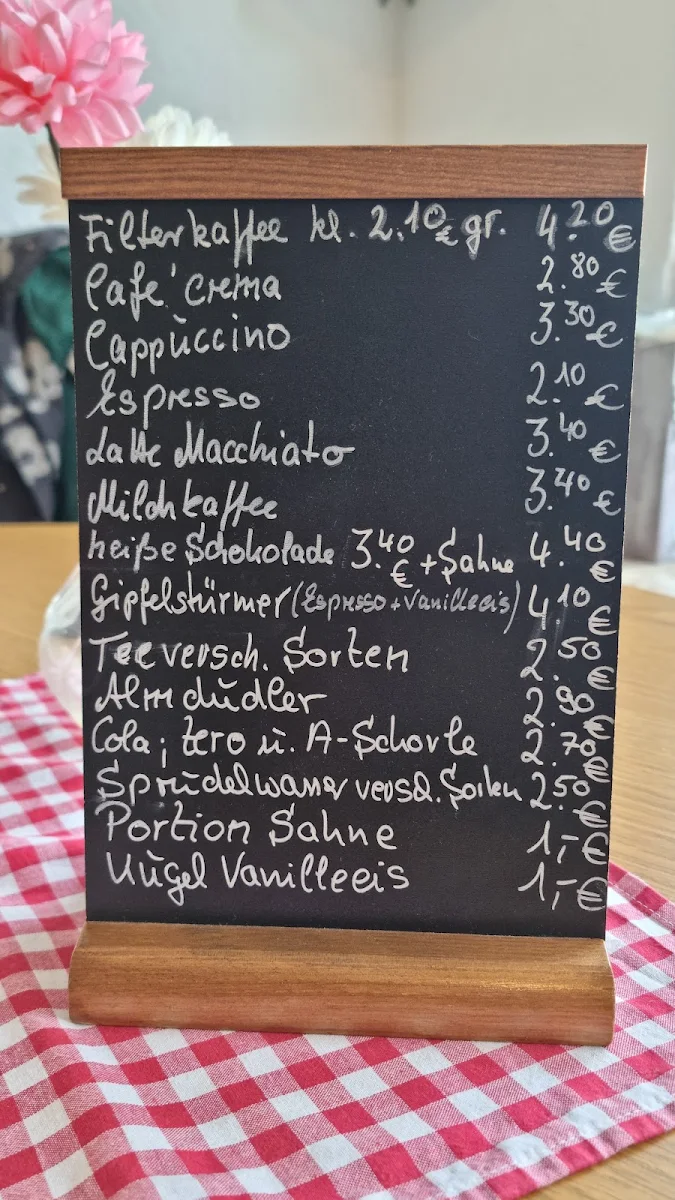 Filterkaffee kl. 2.10€ gr. 4.20€
Cafe' crema 2.80€
Cappuccino 3.30€
Espresso 2.10€
Latte Macchiato 3.40€
Milchkaffee 3.40€
heiße Schokolade 3.40€ + Sahne 4.40€
Gipfelstürmer (Espresso + Vanilleeis) 4.10€
Tee versch. Sorten 2.50€
Almdudler 2.90€
Cola; zero u. A-Schorle 2.70€
Sprudelwasser versch. Sorten 2.50€
Portion Sahne 1,-€
Kugel Vanilleeis 1,-€